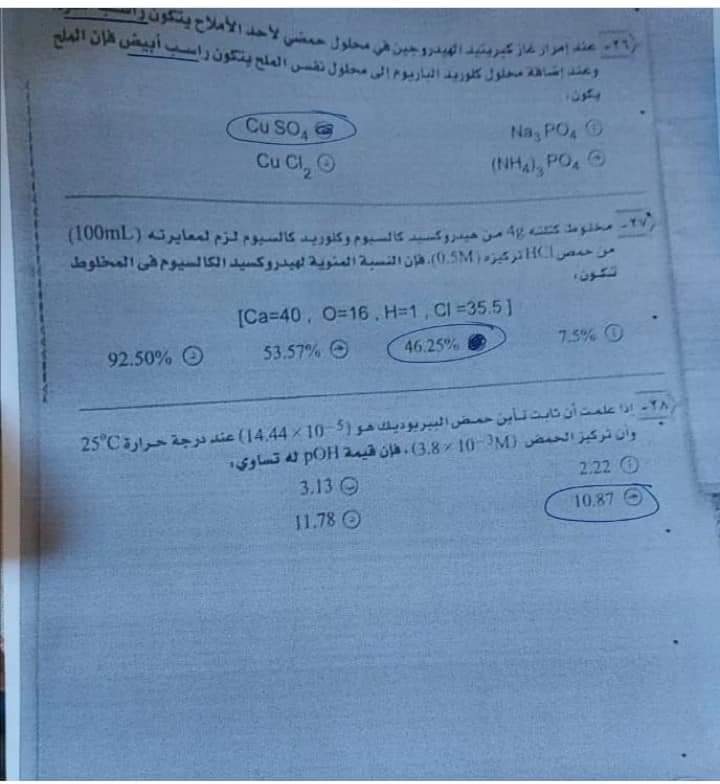 ٢٦- عند إمرار غاز كبريتيد الهيدروجين في محلول حمضي لأحد الأملاح يتكون راسب
وعند إضافة محلول كلوريد الباريوم إلى محلول نفس الملح يتكون راسب أبيض فإن الملح
يكون:
أ Na3PO4
ب CuSO4
ج (NH4)3PO4
د CuCl2
٢٧- مخلوط كتلته 4g من هيدروكسيد كالسيوم وكلوريد كالسيوم لزم لمعايرته (100mL)
من حمض HCl تركيزه (0.5M). فإن النسبة المئوية لهيدروكسيد الكالسيوم في المخلوط
تكون:
[Ca=40 , O=16 , H=1 , Cl =35.5]
أ 7.5%
46.25%
ج 53.57%
د 92.50%
٢٨- إذا علمت أن ثابت تأين حمض البيريوديك هو (14.44 × 10⁻⁵) عند درجة حرارة 25°C
وأن تركيز الحمض (3.8 × 10⁻³M)، فإن قيمة pOH له تساوي:
أ 2.22
ب 3.13
ج 10.87
د 11.78